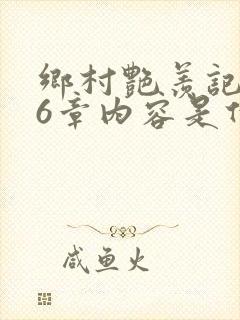 鄉村艷羨記
6章內容是
咸鱼火